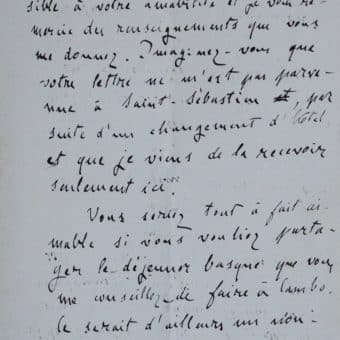 sible à votre amabilité et je vous re-
mercie des renseignements que vous
me donnez. Imaginez-vous que
votre lettre ne m'est pas parve-
nue à Saint-Sébastien, par
suite d'un changement d'hôtel
et que je viens de la recevoir
seulement ici.
Vous seriez tout à fait ai-
mable si vous vouliez parta-
ger le déjeuner basque que vous
me conseillez de faire à Cambo.
Ce serait d'ailleurs un